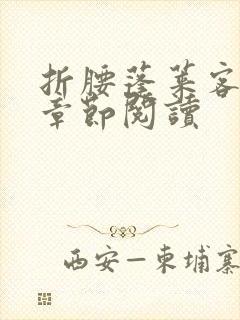 折腰蓬萊客
章節閱讀
西安—柬埔寨